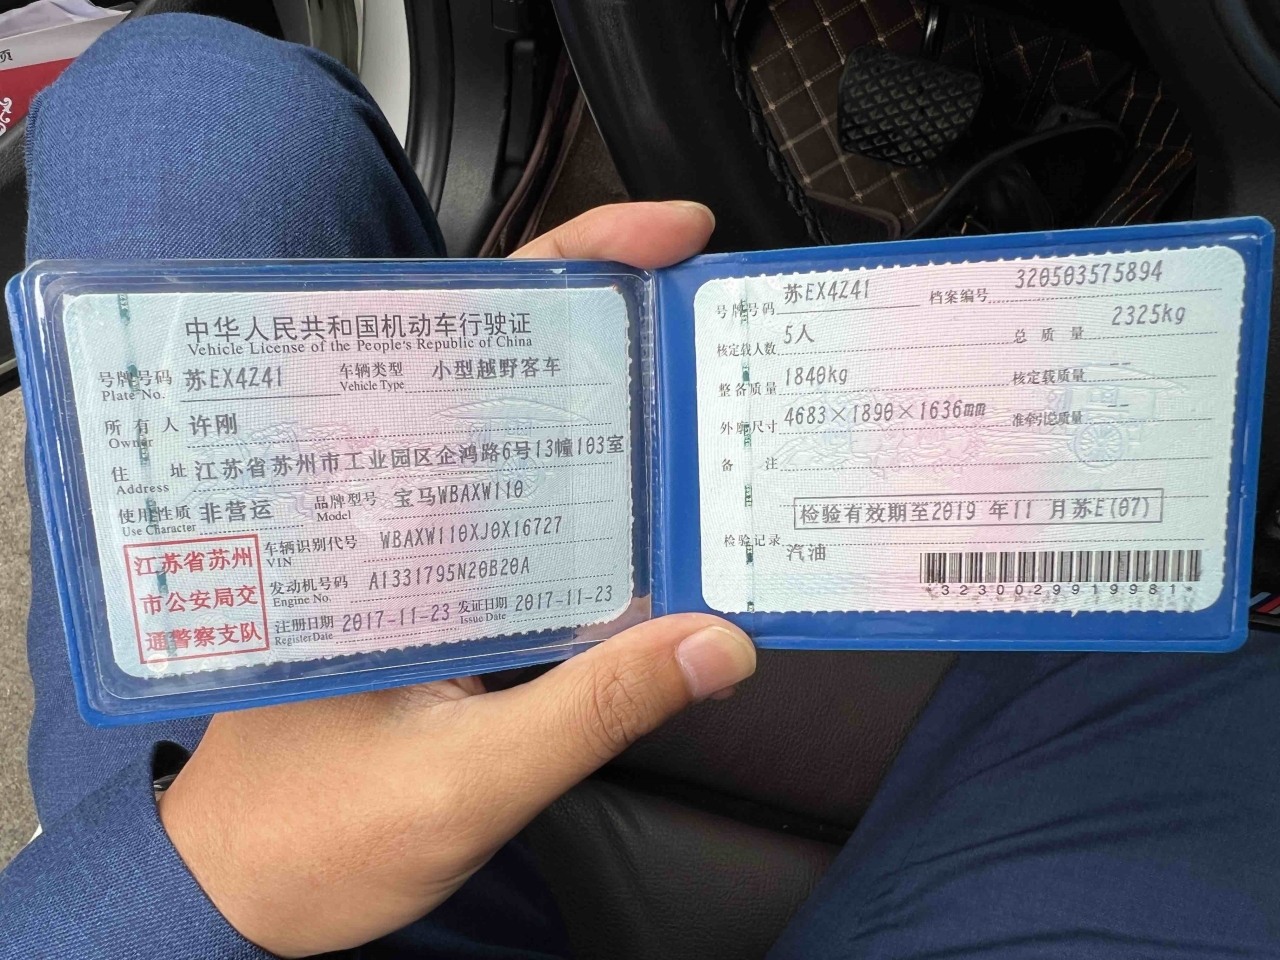 页
中华人民共和国机动车行驶证
Vehicle License of the People's Republic of China
号牌号码 苏EX4Z41 车辆类型 小型越野客车
Plate No. Vehicle Type
所有人 许刚
Owner
住址 江苏省苏州市工业园区企鸿路6号13幢103室
Address
使用性质 非营运 品牌型号 宝马WBAXW110
Use Character Model
江苏省苏州
市公安局交
通警察支队
车辆识别代号 WBAXW110XJ0X16727
VIN
发动机号码 A1331795N20B20A
Engine No.
注册日期 2017-11-23 发证日期 2017-11-23
Register Date Issue Date
号牌号码 苏EX4Z41 档案编号 320503575894
核定载人数 5人 总质量 2325kg
整备质量 1840kg 核定载质量 --
外廓尺寸 4683×1890×1636mm 准牵引总质量 --
备注
检验有效期至2019 年11 月苏E(07)
检验记录
汽油
*3230029919981*